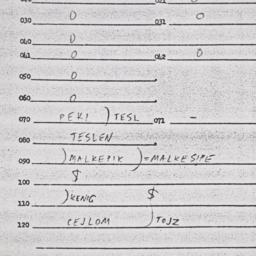 030 0 031 0
040 0
041 0 042 0
050 0
060 0
070 PEKI ) TESL 071 -
080 TESLEN
090 ) MALKEPIK ) = MALKESIPE
100 $
110 ) KENIG $
120 CEJLOM ) TOJZ